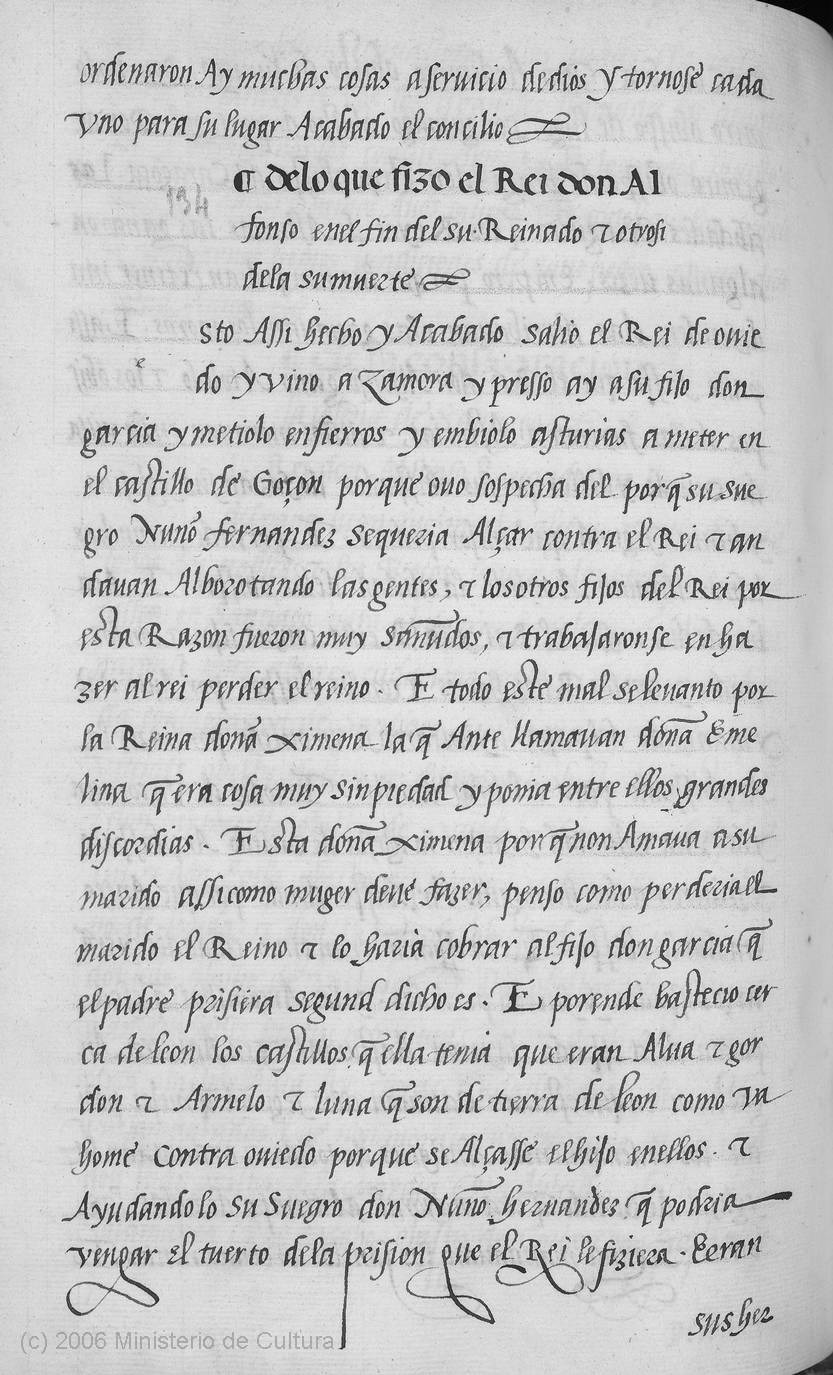 ordenaron Ay muchas cosas a seruicio de dios y tornose cada
vno para su lugar Acabado el concilio
¶ delo que fizo el Rei don Al
134
fonso enel fin del su Reinado τ otrosi
dela su muerte
e
sto Assi hecho y Acabado salio el Rei de ouie
do y vino a Zamora y presso ay a su fijo don
garcia y metiolo en fierros y embiolo asturias a meter en
el castillo de Goçon porque ouo sospecha del porq̃ su sue
gro Nuño fernandez se queria Alçar contra el Rei τ an
dauan Alborotando las gentes, τ los otros fijos del Rei por
esta Razon fueron muy sañudos, τ trabajaronse en ha
zer al rei perder el reino. E todo este mal se leuanto por
la Reina doña ximena la q̃ Ante llamauan doña Eme
lina q̃ era cosa muy sin piedad y ponia entre ellos grandes
discordias. Esta doña ximena porq̃ non Amaua a su
marido assi como muger deue fazer, penso como perderia el
marido el Reino τ lo haria cobrar al fijo don garcia q̃
el padre prisiera segund dicho es. E porende bastecio cer
ca de leon los castillos q̃ ella tenia que eran Alua τ gor
don τ Armelo τ luna q̃ son de tierra de leon como va
home contra ouiedo porque se Alçasse el hijo enellos. τ
Ayudandolo su suegro don Nuño hernandez q̃ podria
vengar El tuerto dela prision que el Rei le fiziera. E eran
sus her
(c) 2006 Ministerio de Cultura